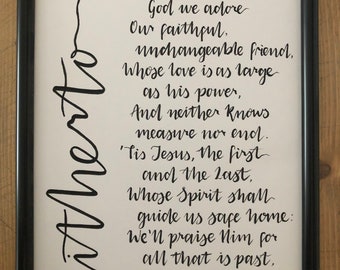 itherto
God we adore
Our faithful,
unchangeable friend,
Whose love is as large
as his power,
And neither knows
measure nor end.
'Tis Jesus, the first
and the last,
Whose Spirit shall
guide us safe home:
We'll praise Him for
all that is past,